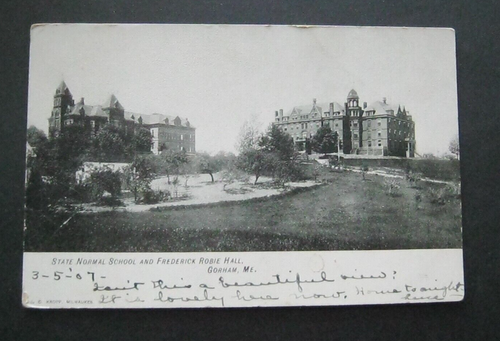 State Normal School and Frederick Robie Hall,
Gorham, Me.
3-5-'07- Isn't this a beautiful view?
It is lovely here now. Home to-night